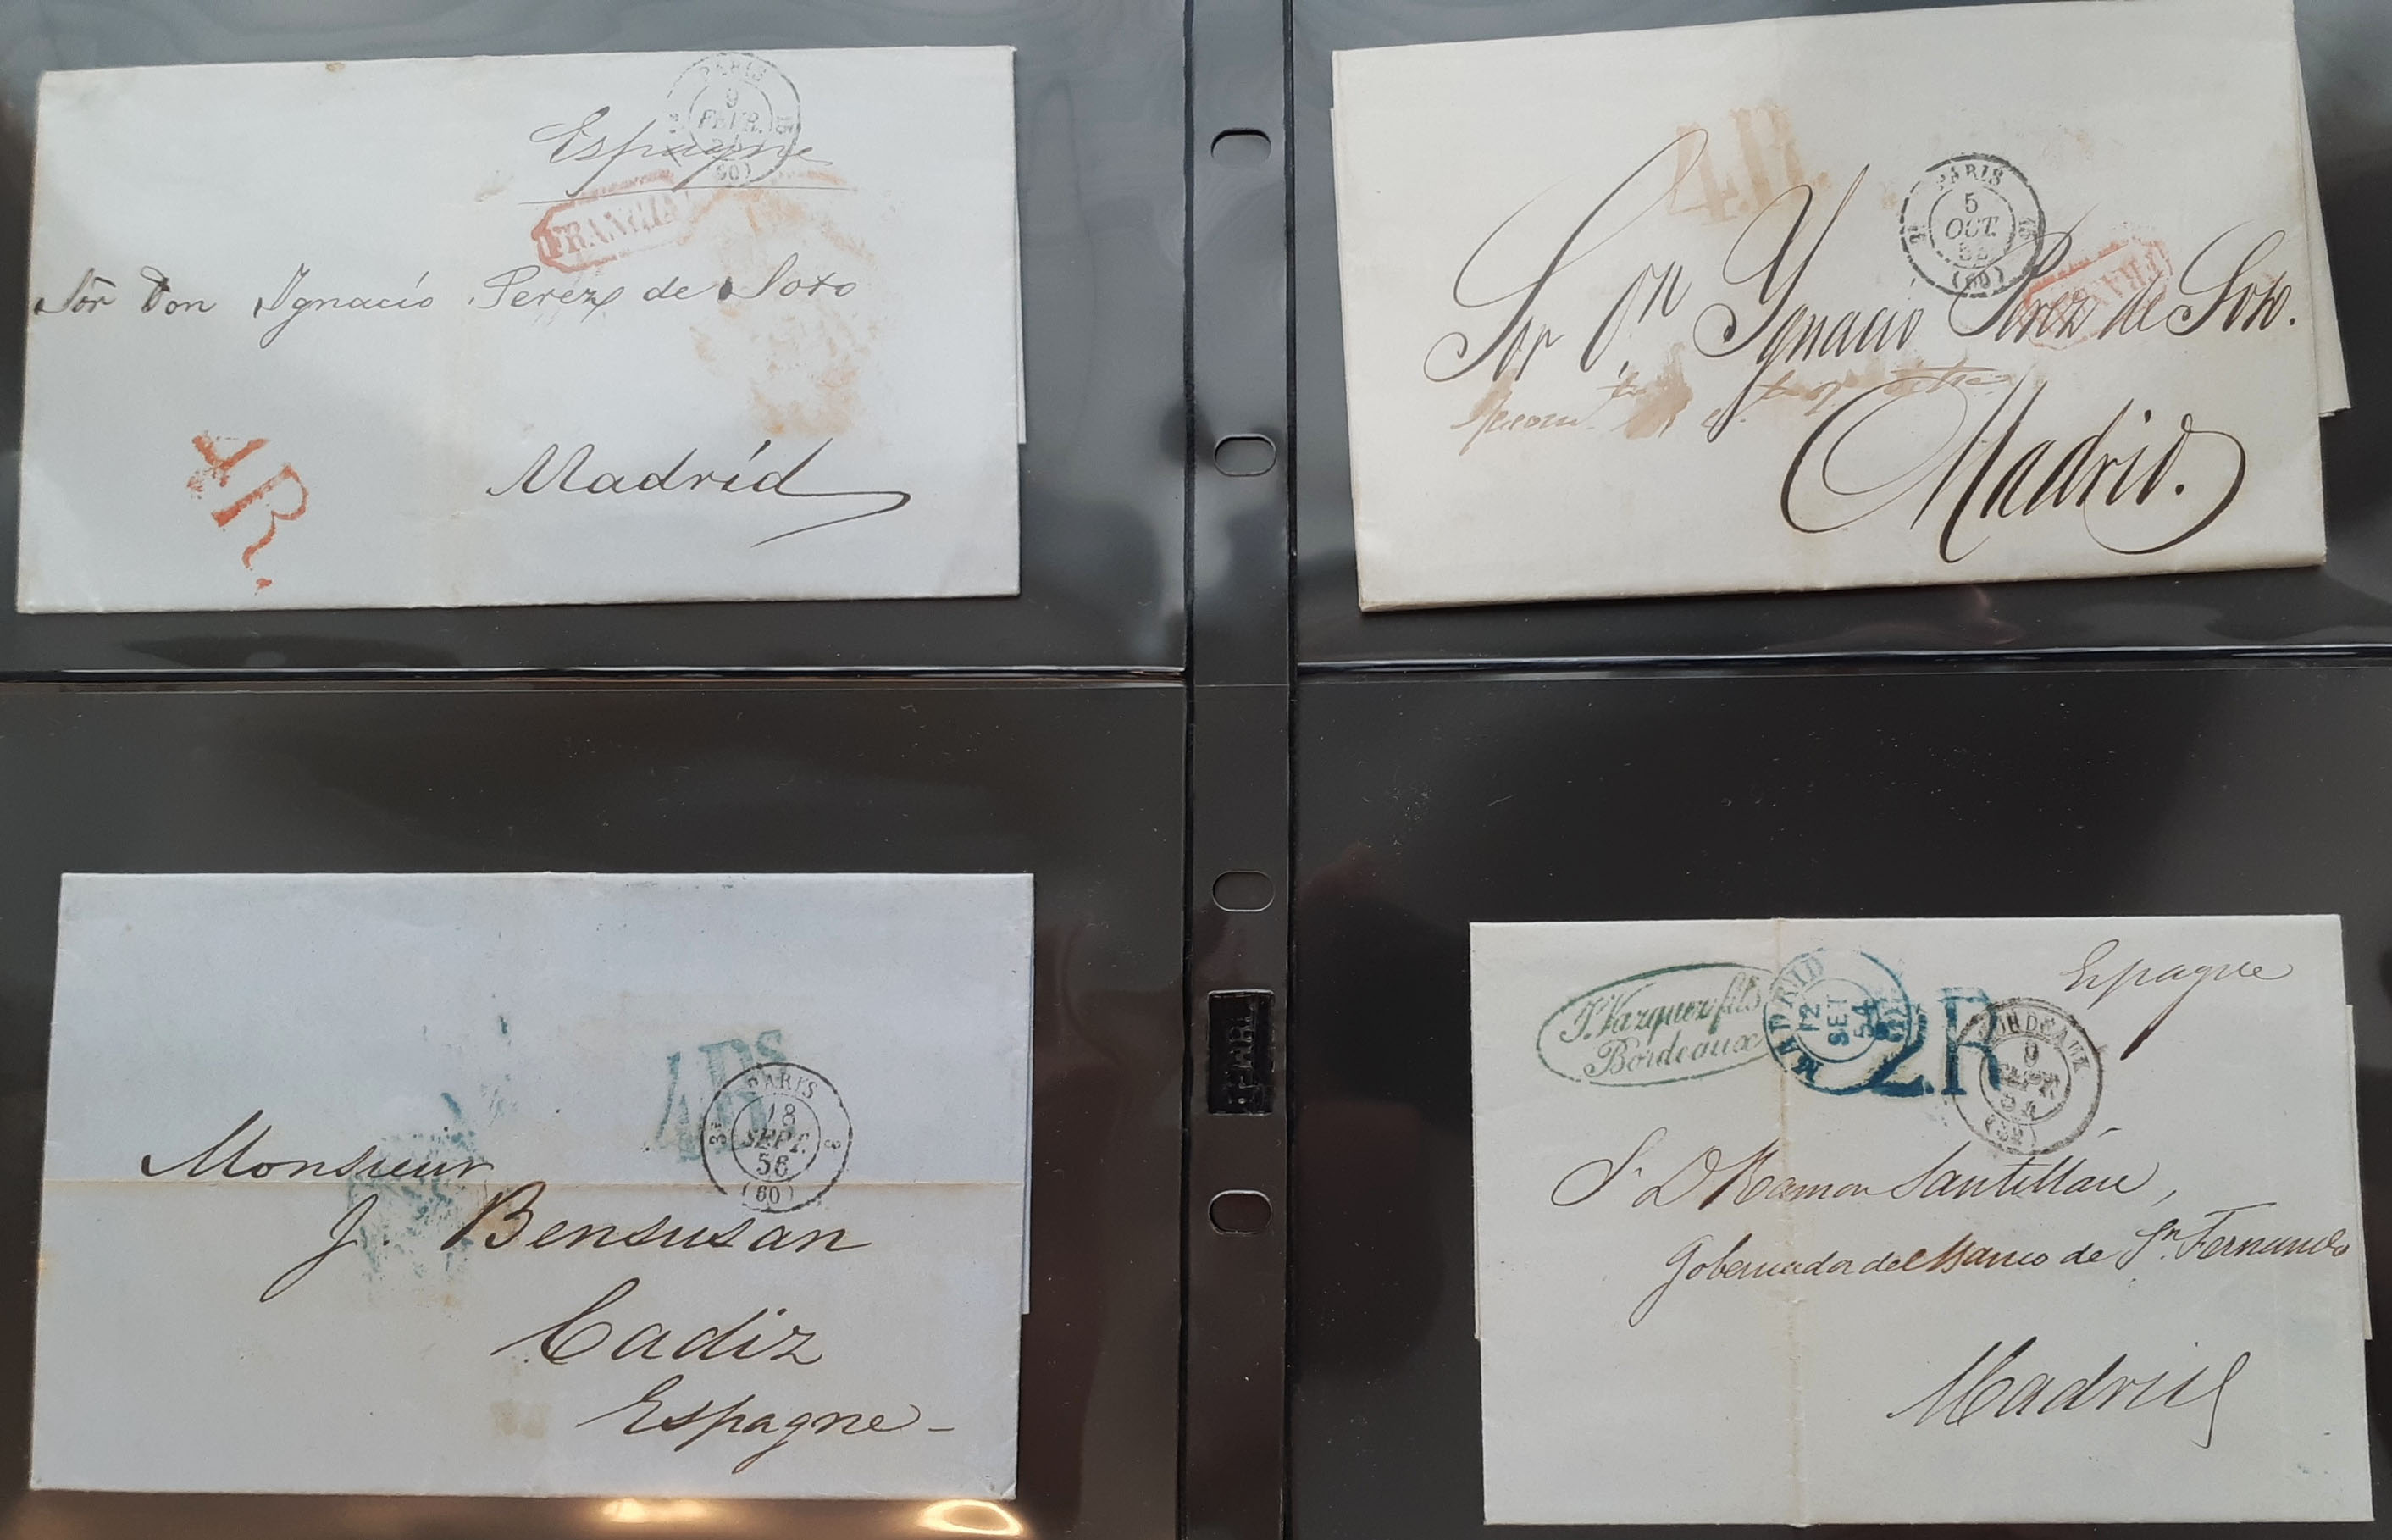 PARIS
9
FEVR.
(60)
Espagne
FRANCIA
Sor Don Ignacio Perez de Soto
Madrid
4R.
4R.
PARIS
5
OCT.
52
(60)
FRANCIA
Sor Dn Ygnacio Perez de Soto.
Madrid.
4Rs
PARIS
3e 3
18
SEPT.
56
(60)
Monsieur
J. Bensusan
Cadiz
Espagne
Espagne
J. Vazquez fils
Bordeaux
MADRID
12
SET
54
2.R
BORDEAUX
9
SEPT.
54
(32)
Sr D Ramon Santillan,
Gobernador del Banco de Sn Fernando
Madrid